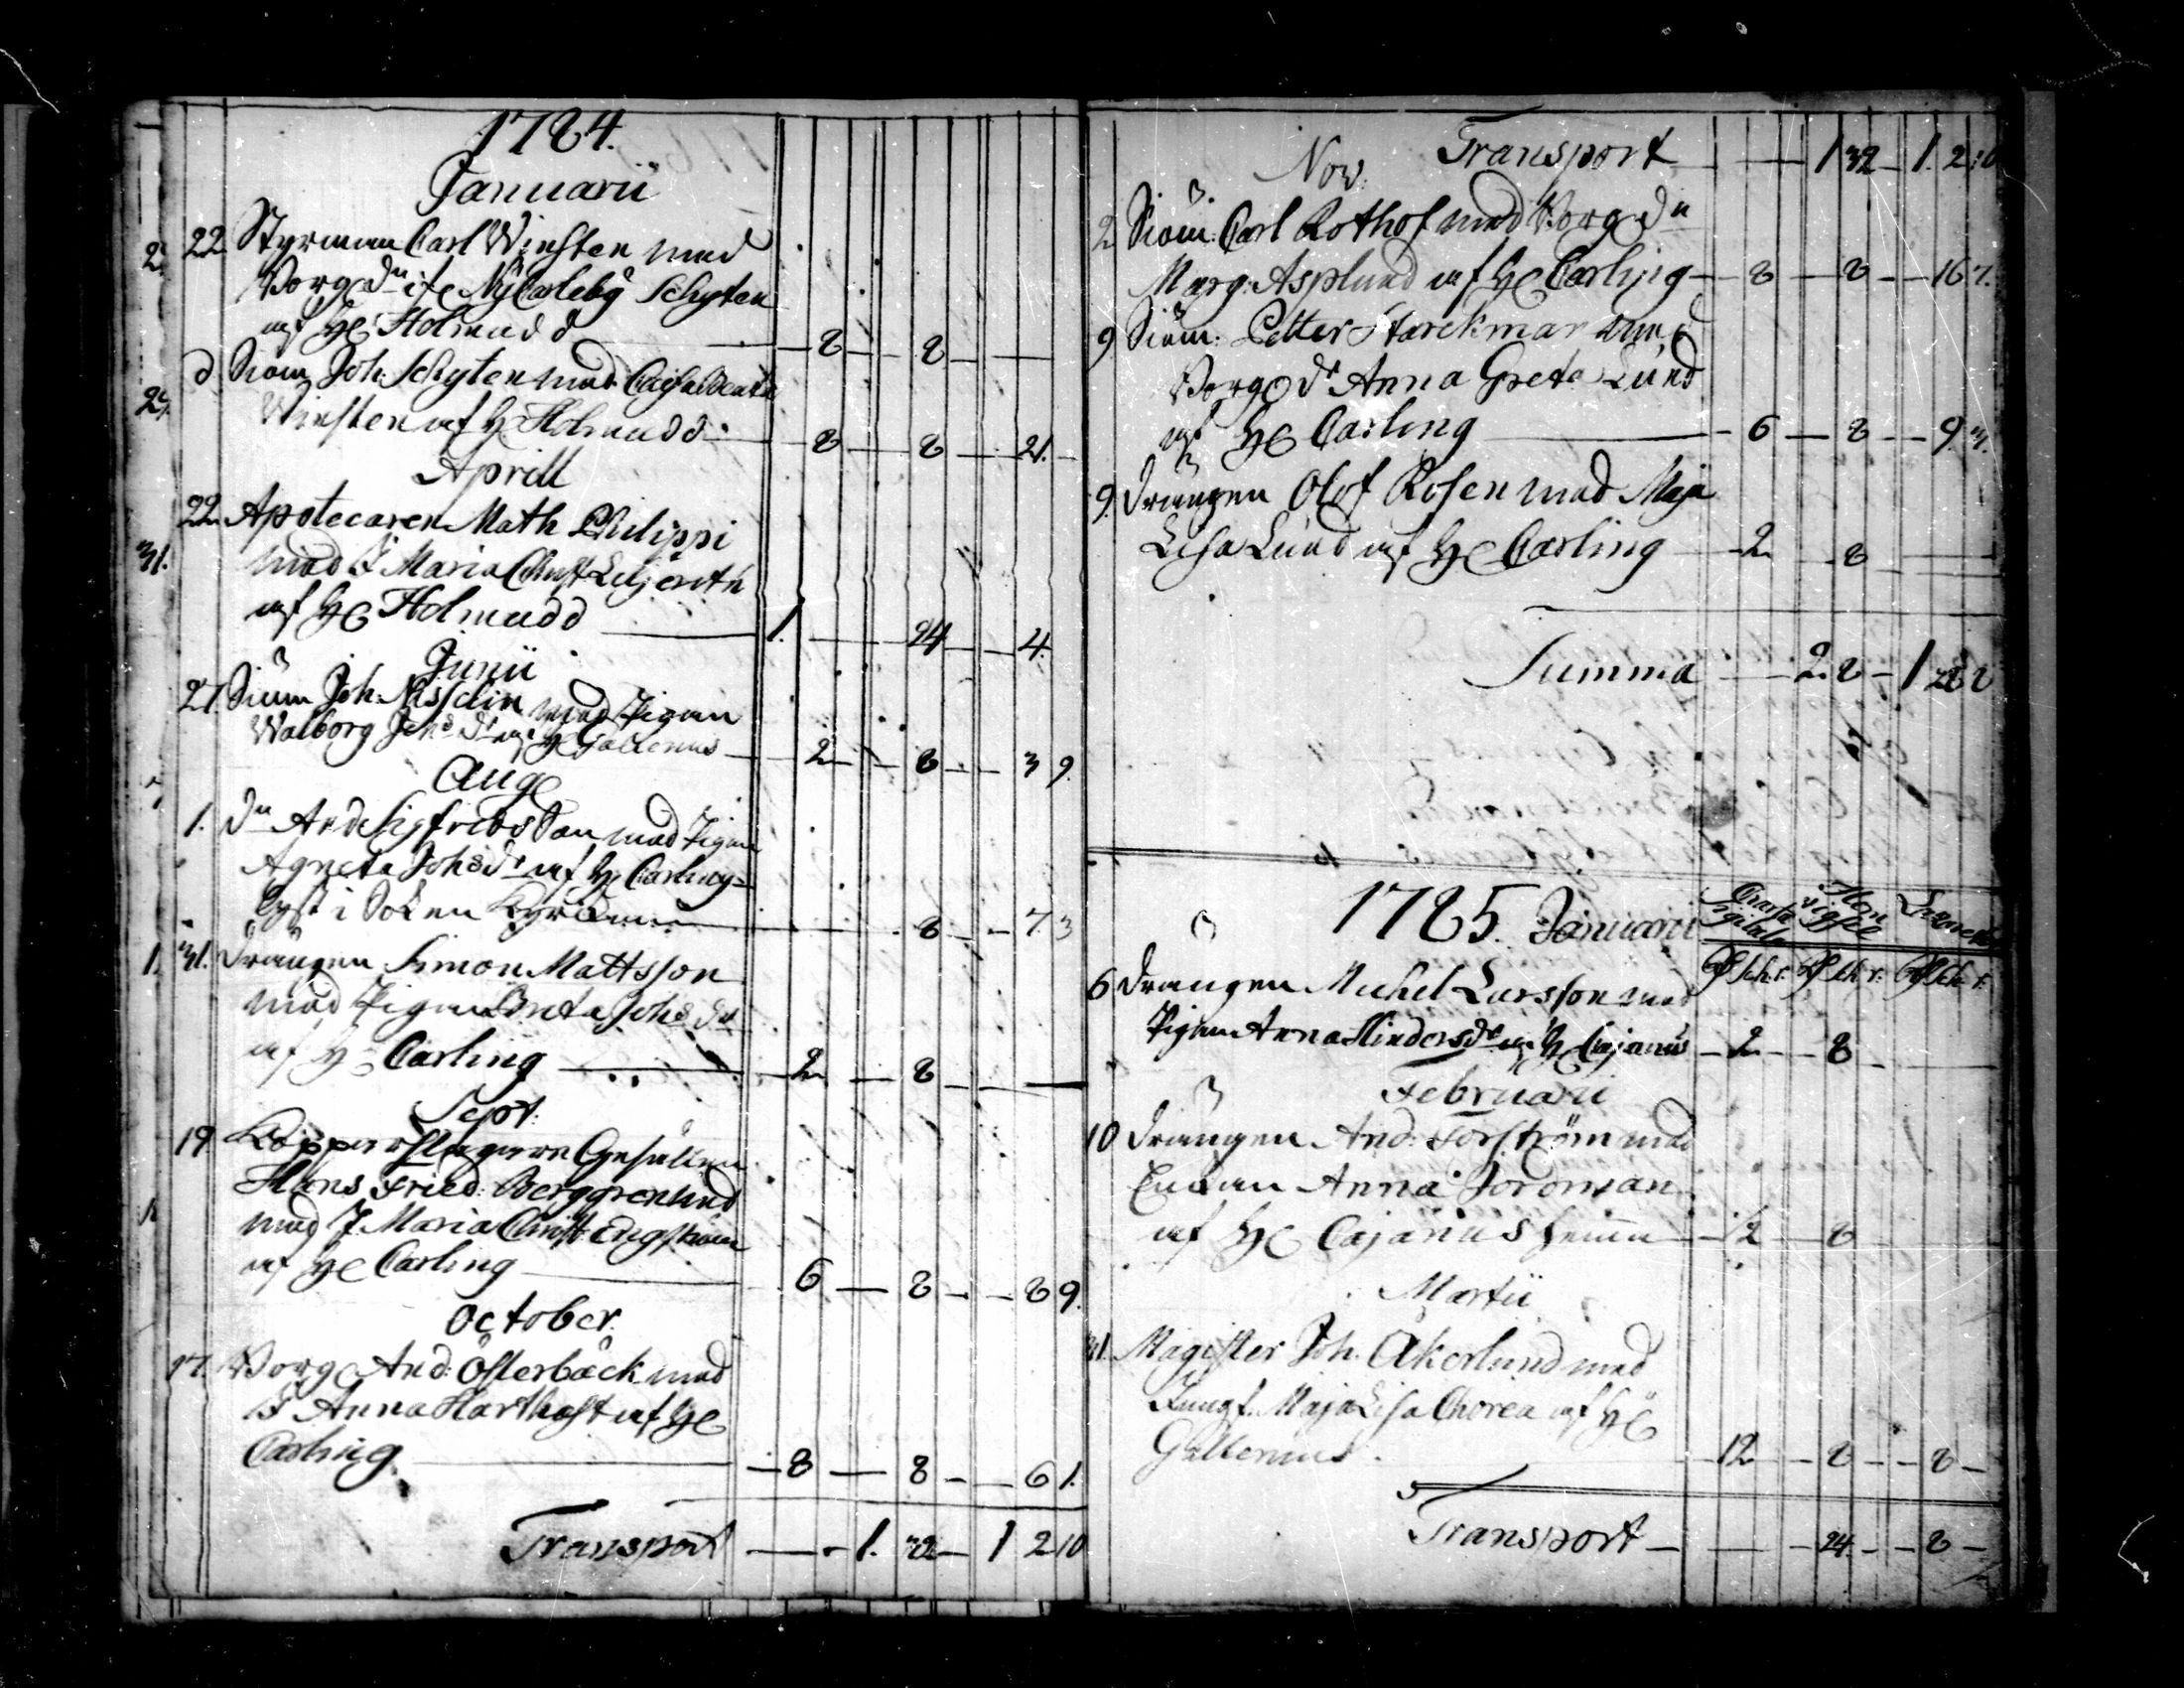 1784.
Januarii
22 Styrman Carl Winsten med
Borg dn i Ny Carleby Schyten
af H Holmudd — 8 — 8 —
d Siöm Joh: Schyten med Cajsa Beata
Winsten af H Holmudd — 8 — 8 — 21.
Aprill
22. Apotecaren Math Philippi
med J Maria Christ
af H Holmudd — 1. — 24 — 4.
Junii
27. Siöm Joh: med Pigan
Walborg Johsdr af H Gallenius — 2 — 8 — 3 9.
Aug
1. dn And Sigfredsson med Pigan
Agneta Johsdr af H Carling
lyst i Soken — 8 — 7 3
31. Drängen Simon Mattsson
med Pigan Breta Johsdr
af H Carling — 2 — 8 —
Sept:
19 Kopparslagare Gesällen
Hans Fried: Berggren
med J. Maria Christ: Engström
af H Carling — 6 — 8 — 8 9.
October.
17. Borg And: Österbäck med
J Anna Harthaft af H
Carling — 8 — 8 — 6 1.
Transport — 1. 32 — 1 2 10
Transport — 1 32 — 1. 2:10
Nov:
2 Siöm: Carl Rothof med Borg dn
Marg: Asplund af H Carling — 8 — 8 — 16 7.
9 Siöm: Petter Starckman med
Borg dr Anna Greta Lund
af H Carling — 6 — 8 — 9.
9. Drängen Olof Rosen med Maja
Lisa Lund af H Carling — 2 — 8 —
Summa — 2 8 — 1 28 8
1785. Januarii
Charta Sigillata Hem vigsel
sch. r. sch r: sch. r.
6 Drängen Michel Larsson med
Pigan Anna Hindersdr af H Cajanus — 2 — 8
Februarii
10 Drängen And: Forström med
Enkan Anna
af H Cajanus hemma — 2 — 8
Martii
31. Magister Joh. Åkerlund med
Jungf. Maja Lisa Chorea af H
Gallenius. 12 — 8 — 8 —
Transport — 24. — 8 —